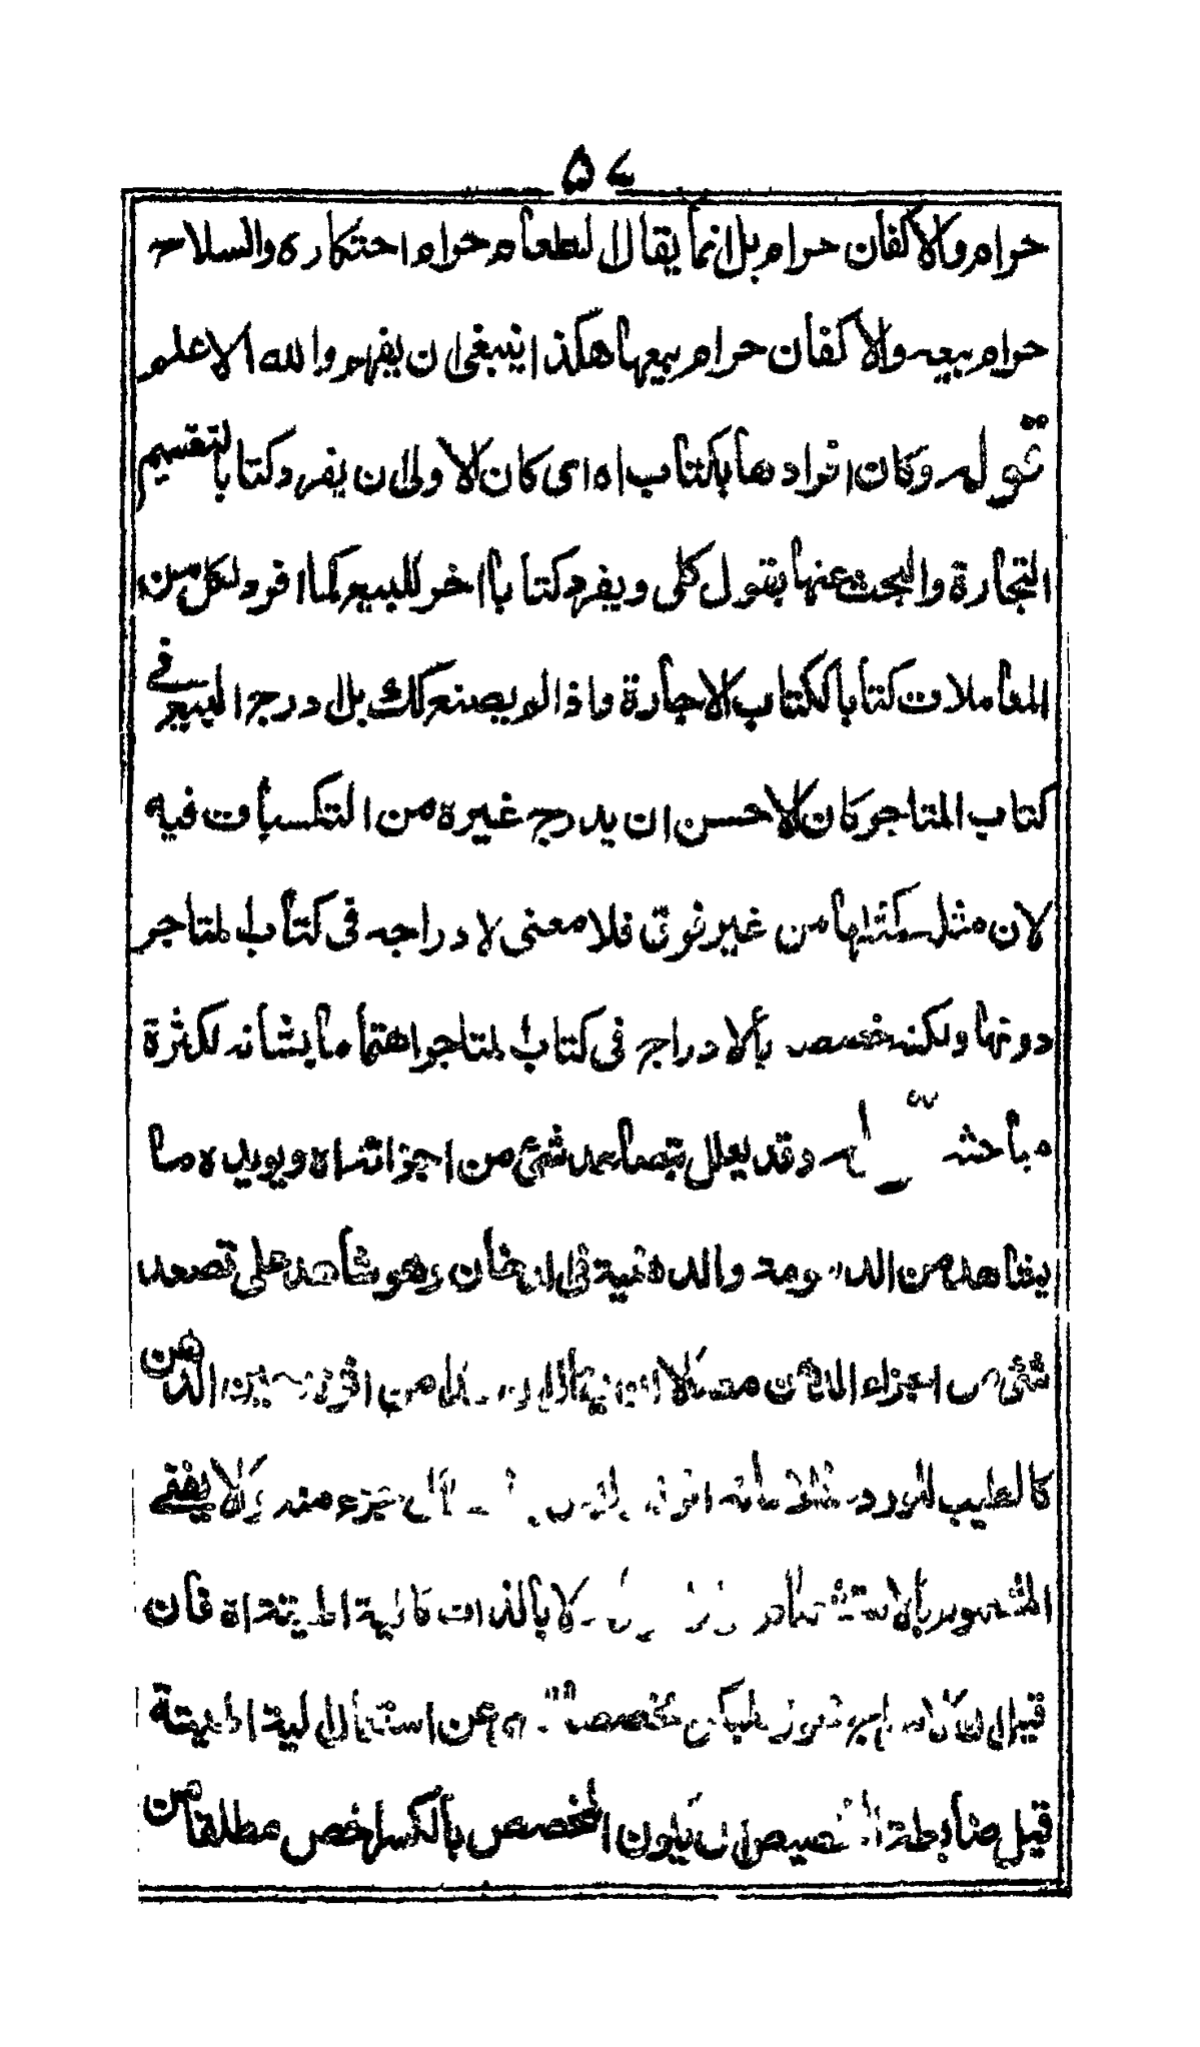 ۵۷
حرام والاكفان حرام بل انما يقال الطعام حرام احتكاره والسلاح
حرام بيعه والاكفان حرام بيعها هكذا ينبغى ان يفهم والله الاعلم
قوله وكان افرادها بكتاب اه اى كان الاولى ان يفرد كتابا لتقسيم
التجارة والبحث عنها بقول كلى ويفرد كتابا اخر للبيع كما افرد لكل من
المعاملات كتابا ككتاب الاجارة واذا لم يصنع كك بل ادرج البيع فى
كتاب المتاجر كان الاحسن ان يدرج غيره من التكسبات فيه
لان مثله كمثلها من غير فرق فلا معنى لادراجه فى كتاب المتاجر
دونها ولكنه خصص بالادراج فى كتاب المتاجر اهتماما بشانه لكثرة
مباحثه قوله وقد يعلل بتصاعد شئ من اجزائه اه ويويده ما
يشاهد من الدسومة والدهنية فى الدخان وهو شاهد على تصعد
شئ من اجزاء الدهن من الدهن
كالطيب جزء منه ولا يخفى
المشهور بالاستثناء لا بالذات كالية الميتة اه فان
قيل ان مخصص عن استعمال الية الميتة
قيل ضابطة التخصيص ان يكون المخصص بالكسر اخص مطلقا من